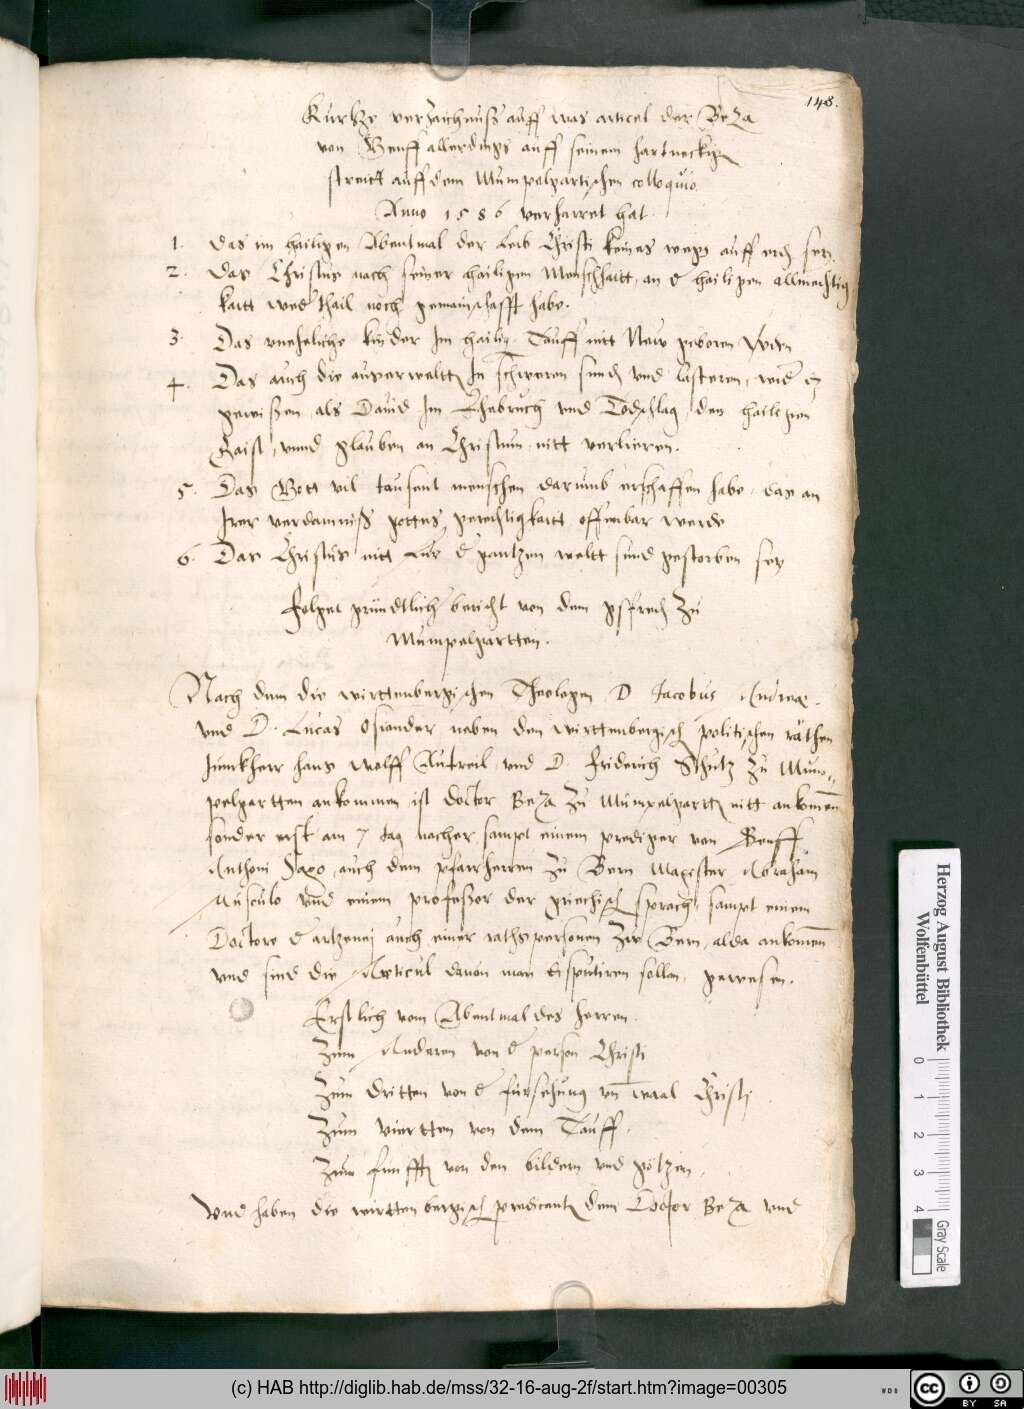 148.
Kurtze verzaichnuß auff was articel der Beza
von Genff allerdings auff seinem hartneckigen
streitt auff dem Mumpelgartischen colloquio
Anno 1586 verharret hat.
1. Das im hailigen Abentmal der Leib Christi keines wegs auff erden sey.
2. Das Christus nach seiner hailigen Menschhaitt, an der hailigen allmechtig
kaitt weder thail noch gemainschafft habe.
3. Das uneheliche kinder Im hailig. Tauff nitt New geboren werden
4. Das auch die auserwelten In schweren sünden und lasteren, wider
gewissen, als David Im Ehebruch und Todschlag, den hailigen
Gaist, unnd glauben an Christum nitt verlieren.
5. Das Gott vil tausent menschen darumb erschaffen habe, das an
Irer verdamniß gottes gerechtigkaitt offenbar werde
6. Das Christus nitt für der gantzen weltt sünd gestorben sey
Folget gründtlich bericht von dem gsprech zu
Mumpelgartten.
Nach dem die wirttenbergischen Theologen D Jacobus Andreæ,
und D. Lucas Osiander neben den wirttenbergisch politischen räthen
Junckherr hans wolff Anweil, und D. Friderich Schütz zu Mum-
pelgartten ankommen, ist doctor Beza zu Mumpelgartt nitt ankomen
sonder erst am 7 tag nacher, sampt einem prediger von Genff
Anthoni Sago, auch dem pfarrherren zu Bern Magister Abraham
Musculo und einem professor der griechisch sprach, sampt einem
Doctore der artzenej auch einer rathspersonen zu Bern, alda ankomen
und sind die Articul davon man disputiren sollen, gewesen.
Erstlich vom Abentmal des herren.
Zum Anderen von der person Christi
Zum dritten von der fürsehung und waal Christi
Zum viertten von dem Tauff.
Zum funfften von den bildern und götzen.
Und haben die wirttenbergisch predicanten dem Doctor Beza und
Herzog August Bibliothek
Wolfenbüttel
0 1 2 3 4
Gray Scale
(c) HAB http://diglib.hab.de/mss/32-16-aug-2f/start.htm?image=00305
WDB
cc BY SA